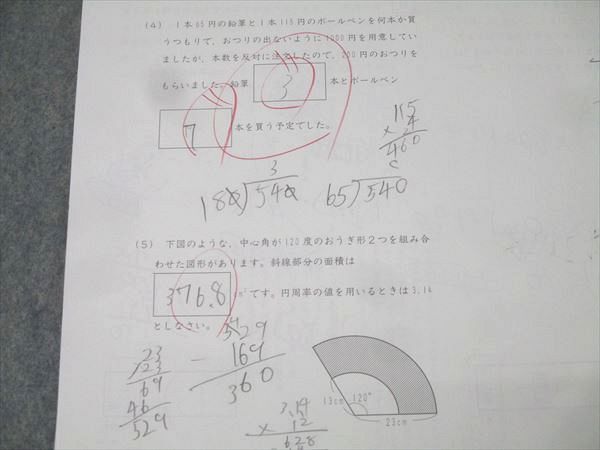 (4) 1本65円の鉛筆と1本115円のボールペンを何本か買
うつもりで、おつりの出ないように1000円を用意してい
ましたが、本数を反対に注文したので、200円のおつりを
もらいました。鉛筆 3 本とボールペン
7 本を買う予定でした。
115
× 4
460
3
180)540
65)540
(5) 下図のような、中心角が120度のおうぎ形2つを組み合
わせた図形があります。斜線部分の面積は
376.8 cm²です。円周率の値を用いるときは3.14
としなさい。
23
×23
69
46
529
529
- 169
360
3.14
× 12
628
13cm 120°
23cm